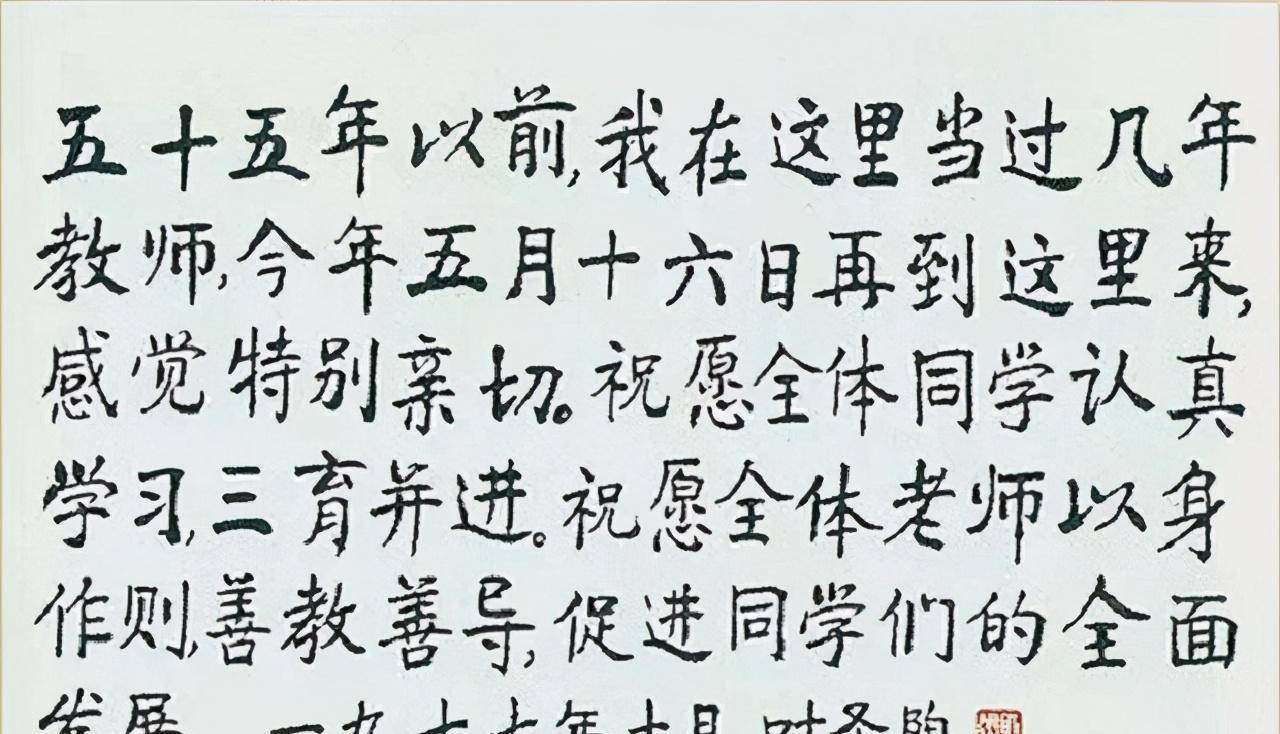 五十五年以前，我在这里当过几年
教师，今年五月十六日再到这里来，
感觉特别亲切。祝愿全体同学认真
学习，三育并进。祝愿全体老师以身
作则，善教善导，促进同学们的全面
发展 一九七七年十月 叶圣陶